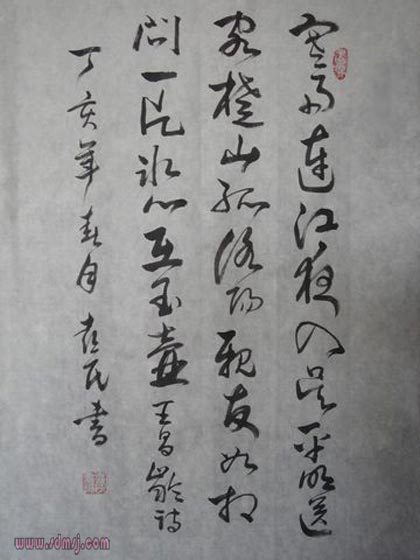 寒雨連江夜入吳平明送
客楚山孤洛陽親友如相
問一片冰心在玉壺王昌齡詩
丁亥年春月民書
www.sdmsj.com